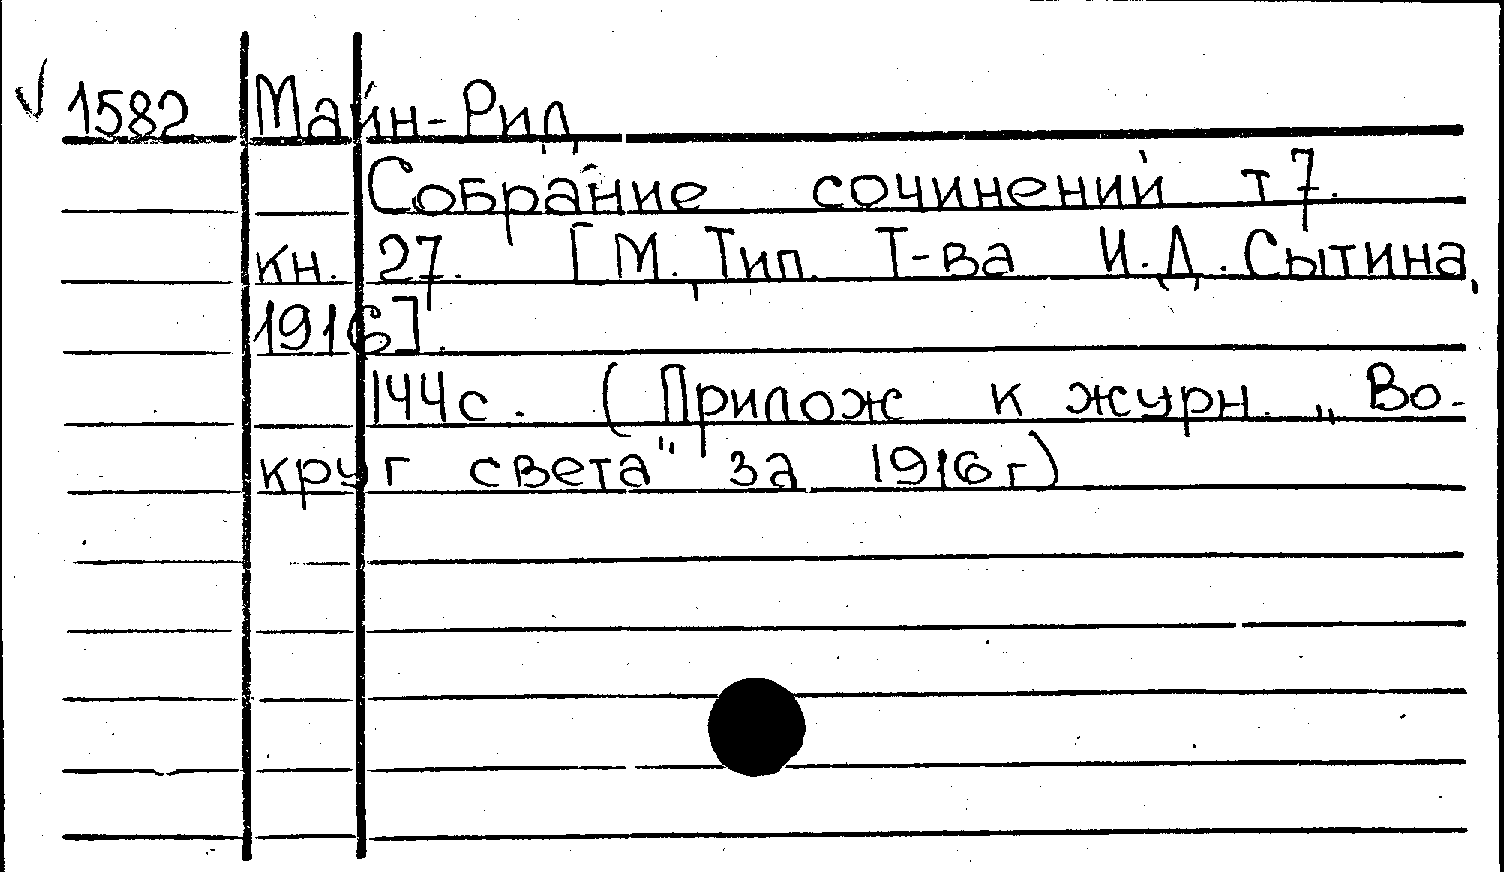 1582 Майн-Рид
Собрание сочинений т 7.
кн. 27. [М. Тип. Т-ва И.Д. Сытина,
1916].
144с. (Прилож к журн. „Во-
круг света" за 1916г)